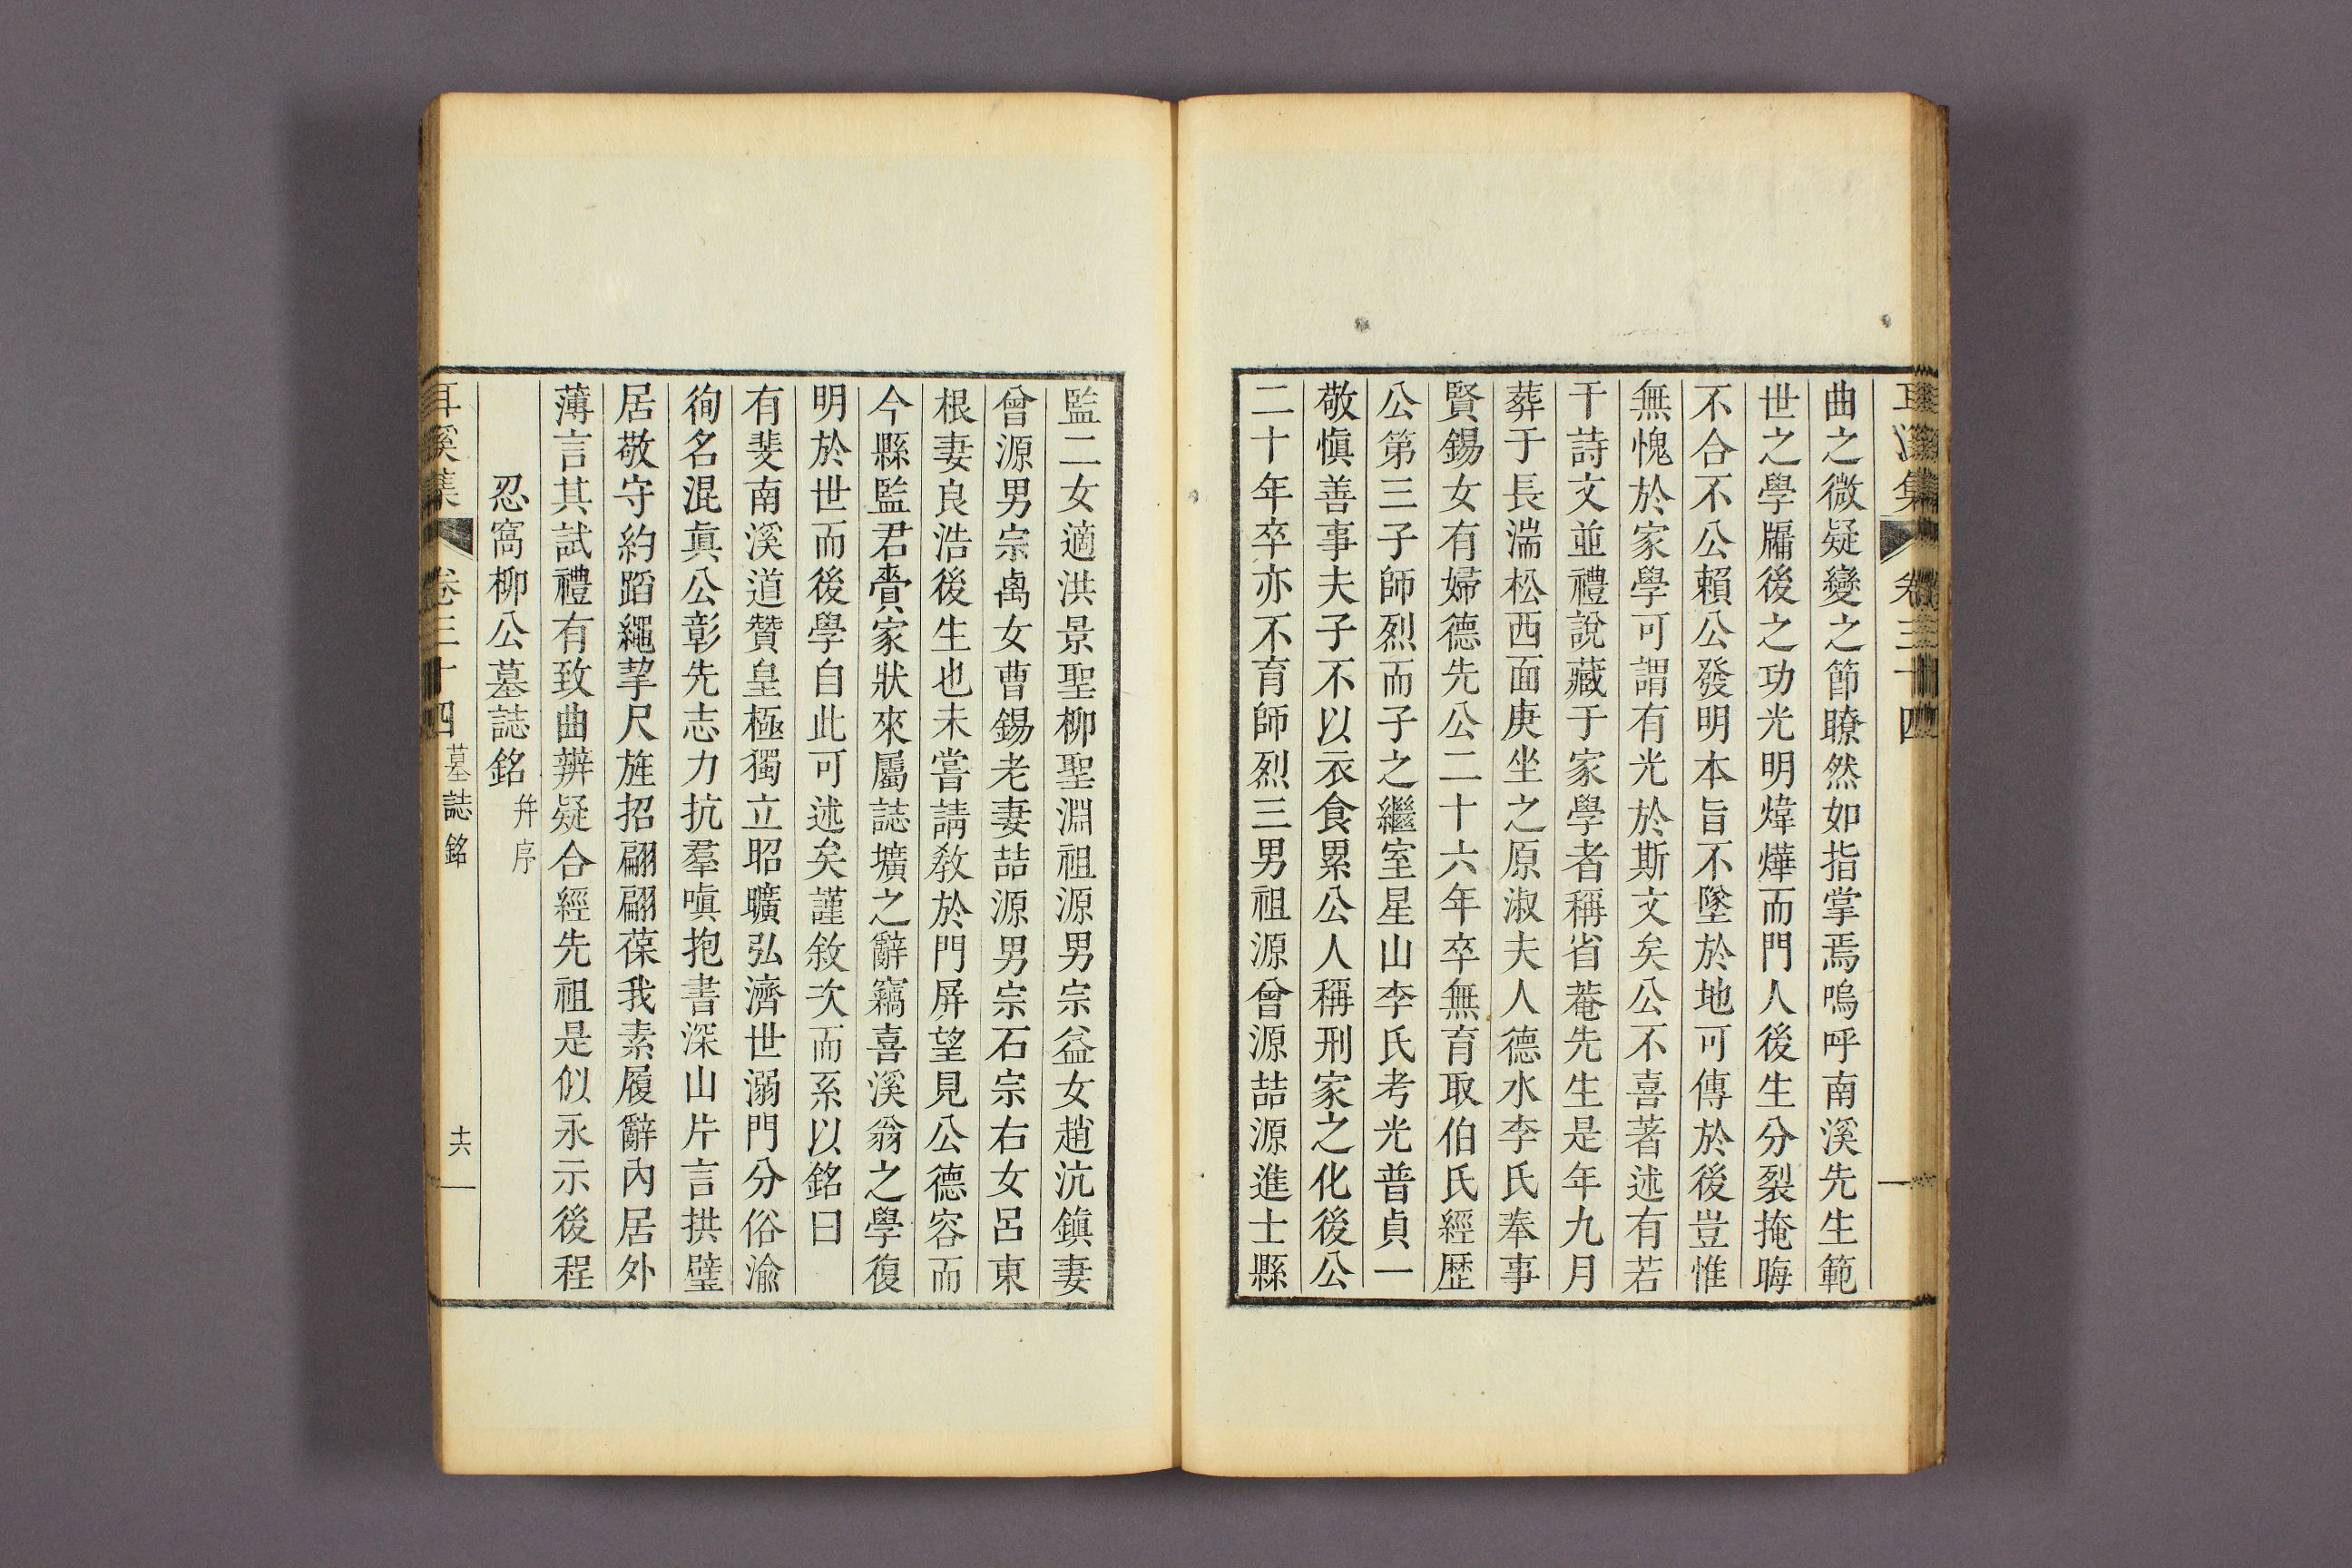 耳溪集 卷三十四
曲之微疑變之節瞭然如指掌焉嗚呼南溪先生範
世之學牖後之功光明煒燁而門人後生分裂掩晦
不合不公賴公發明本旨不墜於地可傳於後豈惟
無愧於家學可謂有光於斯文矣公不喜著述有若
干詩文並禮說藏于家學者稱省菴先生是年九月
葬于長湍松西面庚坐之原淑夫人德水李氏奉事
賢錫女有婦德先公二十六年卒無育取伯氏經歷
公第三子師烈而子之繼室星山李氏考光普貞一
敬愼善事夫子不以衣食累公人稱刑家之化後公
二十年卒亦不育師烈三男祖源曾源喆源進士縣
監二女適洪景聖柳聖淵祖源男宗益女趙沆鎭妻
曾源男宗卨女曹錫老妻喆源男宗石宗右女呂東
根妻良浩後生也未嘗請敎於門屛望見公德容而
今縣監君賫家狀來屬誌壙之辭竊喜溪翁之學復
明於世而後學自此可述矣謹敘次而系以銘曰
有斐南溪道贊皇極獨立昭曠弘濟世溺門分俗渝
徇名混眞公彰先志力抗羣嗔抱書深山片言拱璧
居敬守約蹈繩挈尺旌招翩翩葆我素履辭內居外
薄言其試禮有致曲辨疑合經先祖是似永示後程
忍窩柳公墓誌銘 幷序
耳溪集 卷三十四 墓誌銘 十六